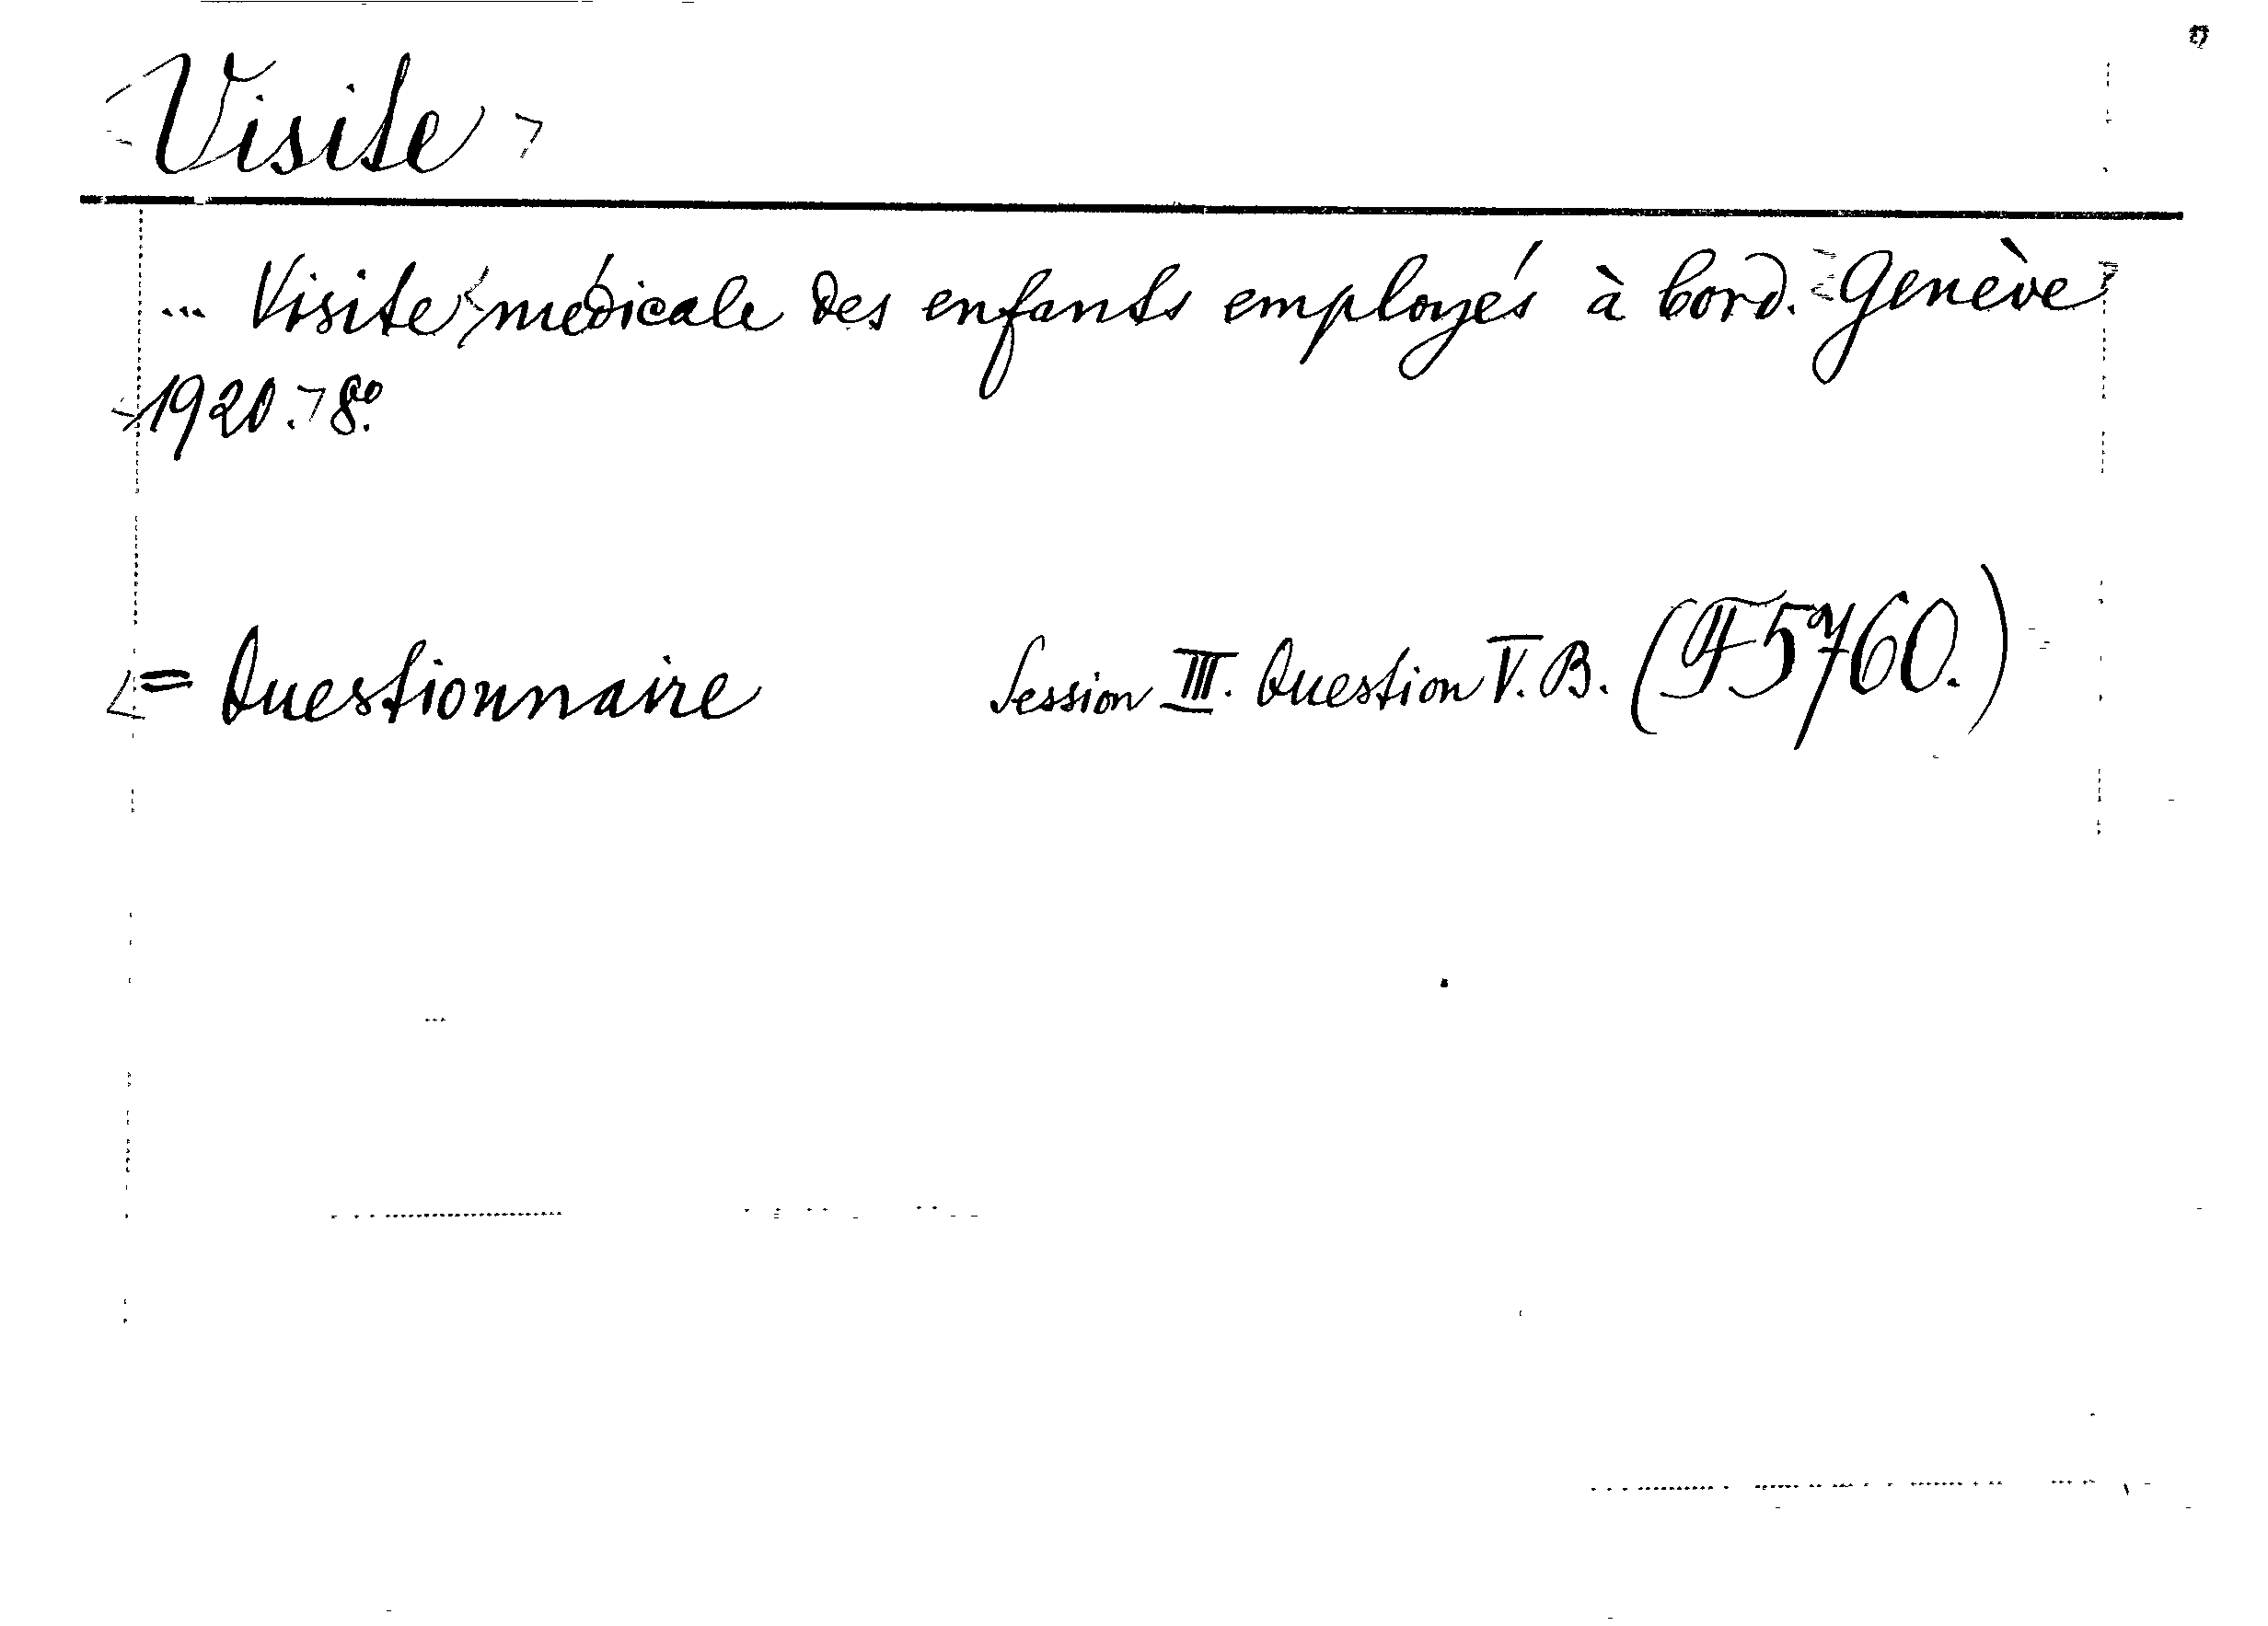 Visite
... Visite médicale des enfants employés à bord. Genève
1920. 8º.
= Questionnaire Session III. Question V. B. (F5760.)